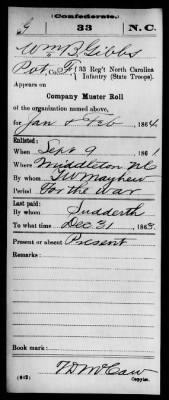 (Confederate.)
G 33 N.C.
Wm B. Gibbs
Pvt, Co. F, 33 Reg't North Carolina
Infantry (State Troops).
Appears on
Company Muster Roll
of the organization named above,
for Jan & Feb, 1864.
Enlisted:
When Sept 9, 1861.
Where Middleton NC
By whom TW Mayhew
Period For the war
Last paid:
By whom Sudderth
To what time Dec 31, 1863.
Present or absent Present
Remarks:
Book mark:
(642) Copyist.